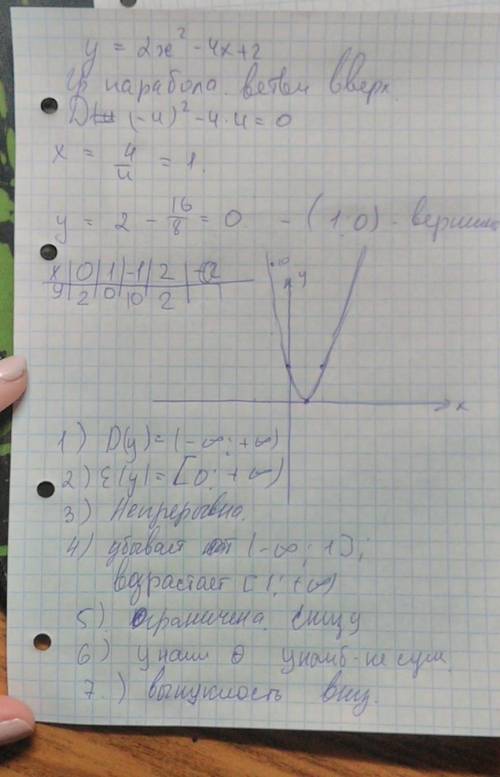 y = 2x² - 4x + 2
Гр парабола. ветви вверх.
D = (-4)² - 4·4 = 0
x = 4/4 = 1.
y = 2 - 16/8 = 0 - (1 0) - вершина
x | 0 | 1 | -1 | 2 | -2
y | 2 | 0 | 10 | 2 |
10
y
x
1) D(y) = (-∞; +∞)
2) E(y) = [0; +∞)
3) Непрерывна.
4) убывает (-∞; 1];
возрастает [1; +∞)
5) Ограничена снизу
6) y наим 0 y наиб - не сущ.
7.) выпуклость вниз.